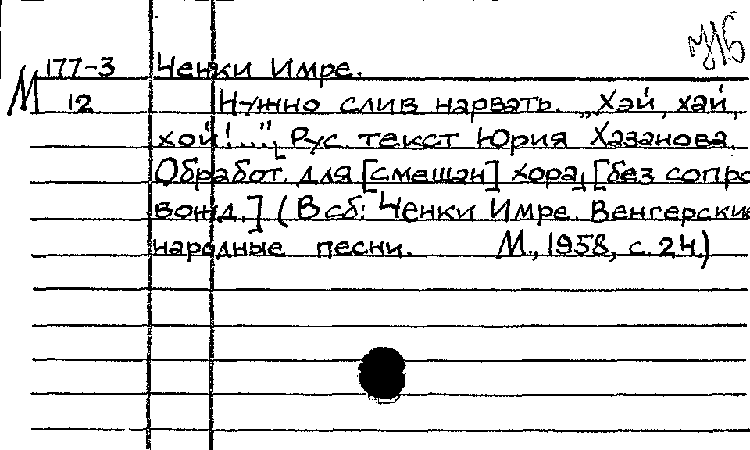 М 177-3 Ченки Имре.
12 Нужно слив нарвать. „Хэй, хай,
хой!...", Рус. текст Юрия Хазанова.
Обработ. для [смешан] хора, [без сопро
вожд.] (В сб: Ченки Имре. Венгерские
народные песни. М., 1958, с. 24.)